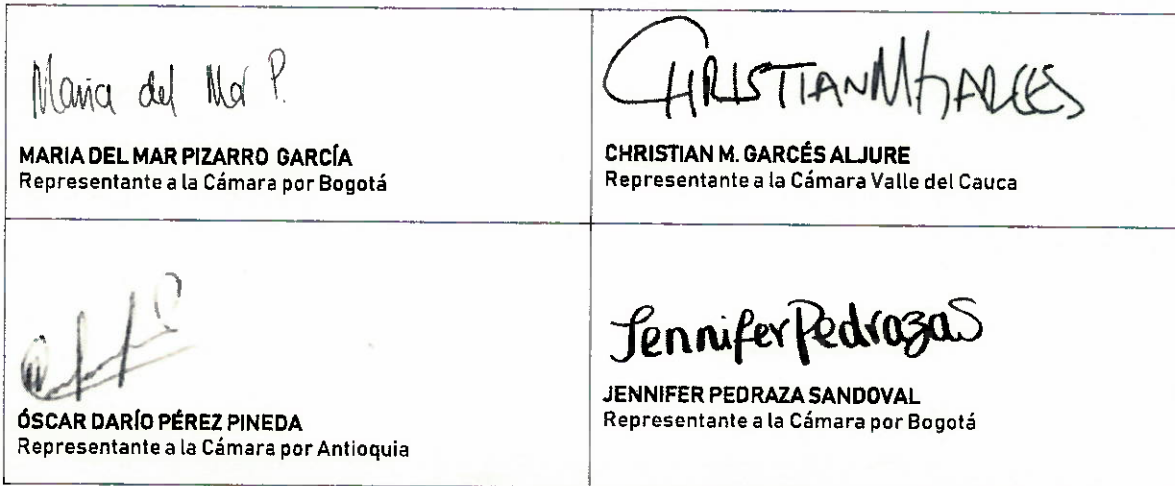 Maria del Mar P.
MARIA DEL MAR PIZARRO GARCÍA
Representante a la Cámara por Bogotá
CHRISTIAN M GARCES
CHRISTIAN M. GARCÉS ALJURE
Representante a la Cámara Valle del Cauca
ÓSCAR DARÍO PÉREZ PINEDA
Representante a la Cámara por Antioquia
Jennifer Pedraza S
JENNIFER PEDRAZA SANDOVAL
Representante a la Cámara por Bogotá